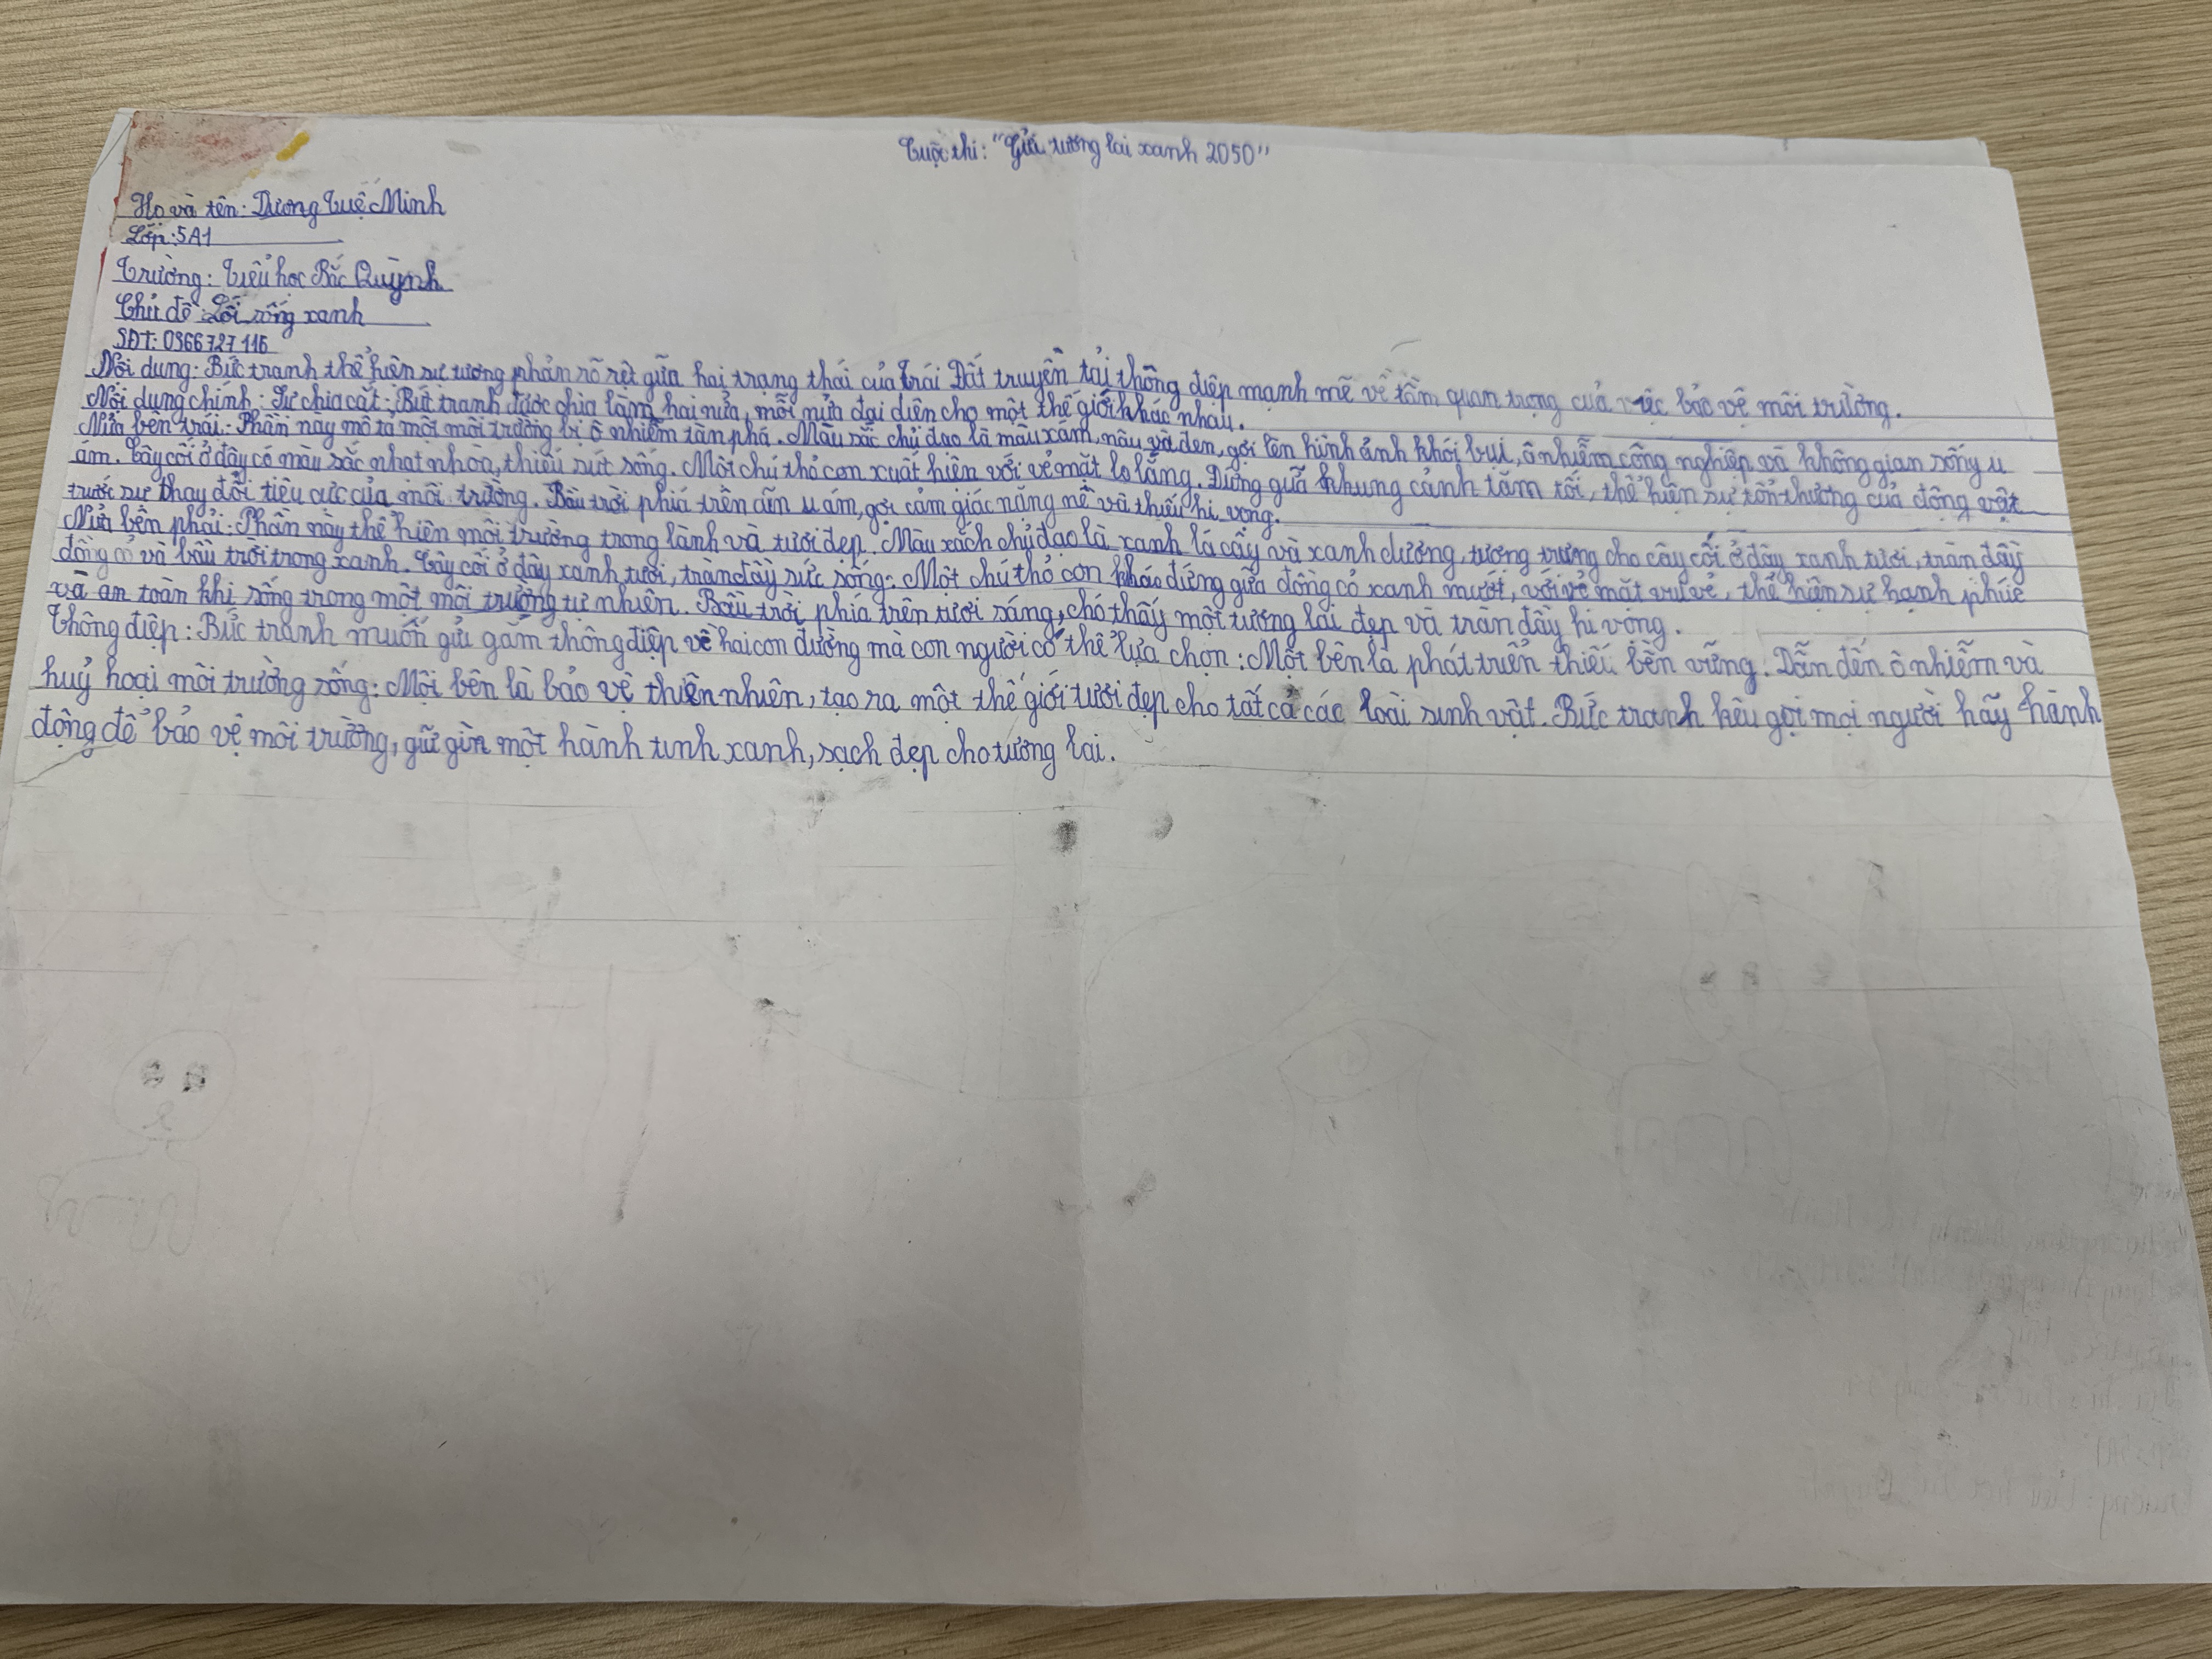 Cuộc thi: "Gửi tương lai xanh 2050"
Họ và tên: Dương Tuệ Minh
Lớp: 5A1
Trường: Tiểu học Bắc Quỳnh
Chủ đề: Lối sống xanh
SĐT: 0966727116
Nội dung: Bức tranh thể hiện sự tương phản rõ rệt giữa hai trạng thái của Trái Đất truyền tải thông điệp mạnh mẽ về tầm quan trọng của việc bảo vệ môi trường.
Nội dung chính: Sự chia cắt: Bức tranh được chia làm hai nửa, mỗi nửa đại diện cho một thế giới khác nhau.
Nửa bên trái: Phần này mô tả một môi trường bị ô nhiễm tàn phá. Màu sắc chủ đạo là màu xám, nâu và đen, gợi lên hình ảnh khói bụi, ô nhiễm công nghiệp và không gian sống u
ám. Cây cối ở đây có màu sắc nhạt nhòa, thiếu sức sống. Một chú thỏ con xuất hiện với vẻ mặt lo lắng. Đứng giữa khung cảnh tăm tối, thể hiện sự tổn thương của động vật
trước sự thay đổi tiêu cực của môi trường. Bầu trời phía trên ảm u ám, gợi cảm giác nặng nề và thiếu hi vọng.
Nửa bên phải: Phần này thể hiện môi trường trong lành và tươi đẹp. Màu xách chủ đạo là xanh lá cây và xanh dương, tượng trưng cho cây cối ở đây xanh tươi, tràn đầy
đồng cỏ và bầu trời trong xanh. Cây cối ở đây xanh tươi, tràn đầy sức sống: Một chú thỏ con khác đứng giữa đồng cỏ xanh mướt, với vẻ mặt vui vẻ, thể hiện sự hạnh phúc
và an toàn khi sống trong một môi trường tự nhiên. Bầu trời phía trên tươi sáng, chó thấy một tương lai đẹp và tràn đầy hi vọng.
Thông điệp: Bức tranh muốn gửi gắm thông điệp về hai con đường mà con người có thể lựa chọn: Một bên là phát triển thiếu bền vững. Dẫn đến ô nhiễm và
huỷ hoại môi trường sống: Một bên là bảo vệ thiên nhiên, tạo ra một thế giới tươi đẹp cho tất cả các loài sinh vật. Bức tranh kêu gọi mọi người hãy hành
động để bảo vệ môi trường, giữ gìn một hành tinh xanh, sạch đẹp cho tương lai.